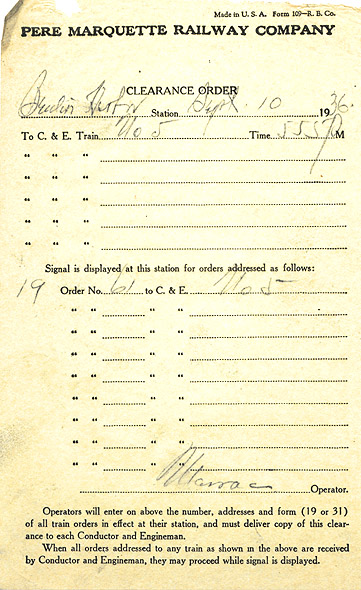 Made in U. S. A. Form 109—R. B. Co.
PERE MARQUETTE RAILWAY COMPANY
CLEARANCE ORDER
Station Sept 10 1936
To C. & E. Train No 5 Time 555 PM
" " "
" " "
" " "
" " "
" " "
Signal is displayed at this station for orders addressed as follows:
19 Order No. 61 to C. & E. No 5
" " " "
" " " "
" " " "
" " " "
" " " "
" " " "
" " " "
" " " "
Operator.
Operators will enter on above the number, addresses and form (19 or 31)
of all train orders in effect at their station, and must deliver copy of this clear-
ance to each Conductor and Engineman.
When all orders addressed to any train as shown in the above are received
by Conductor and Engineman, they may proceed while signal is displayed.